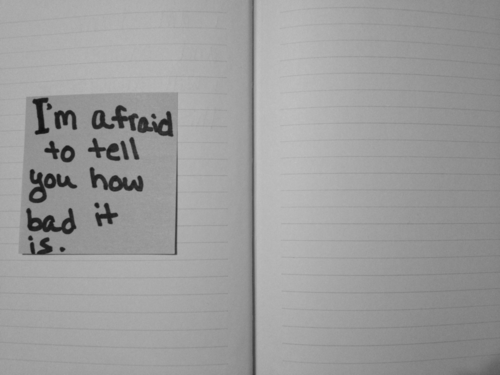 I'm afraid
to tell
you how
bad it
is.